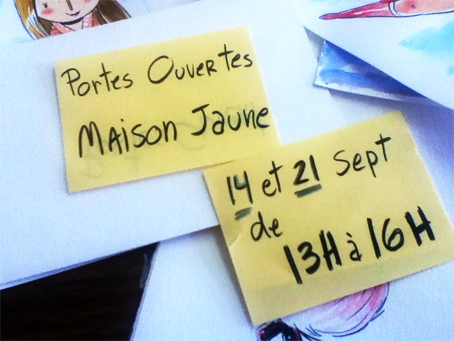 Portes Ouvertes
Maison Jaune
14 et 21 Sept
de
13H à 16H